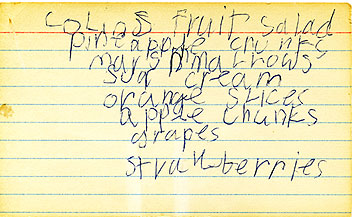 fruit salad
pineapple chunks
marshmallows
sur cream
orange slices
apple chunks
grapes
strawberries